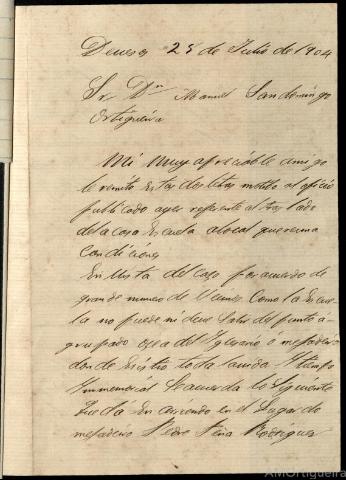 Devesos 25 de Julio de 1904
Sr. Dn Manuel Sandomingo
Ortigueira
Mi muy apreciable amigo
le remito estas dos letras motibo al oficio
publicado ayer referente al tras lado
dela casa Escuela alocal que reuna
Condiciones
En Vista del caso por acuerdo de
grande numero de Vecinos. Como la Escue
la no puede ni deve Salir del punto a
grupado cerca del Yglesario ó mesadoiro
donde Existio toda la vida Y tiempo
Ynmemorial Se acuerda lo Siguiente
Que dá En arriendo en el Lugar de
mesadoiro Pedro Peña Rodriguez
AMOrtigueira